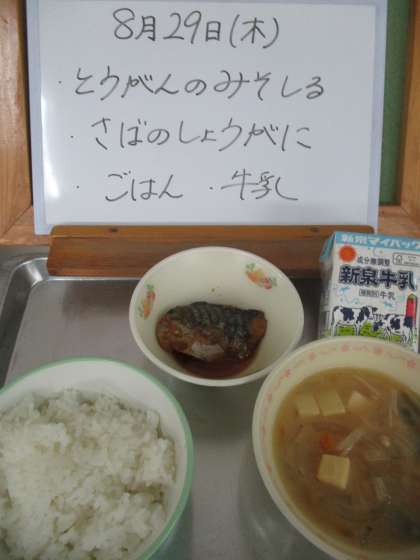 8月29日(木)
・とうがんのみそしる
・さばのしょうがに
・ごはん ・牛乳
新泉マイパック
成分無調整
新泉牛乳
(種類別)牛乳